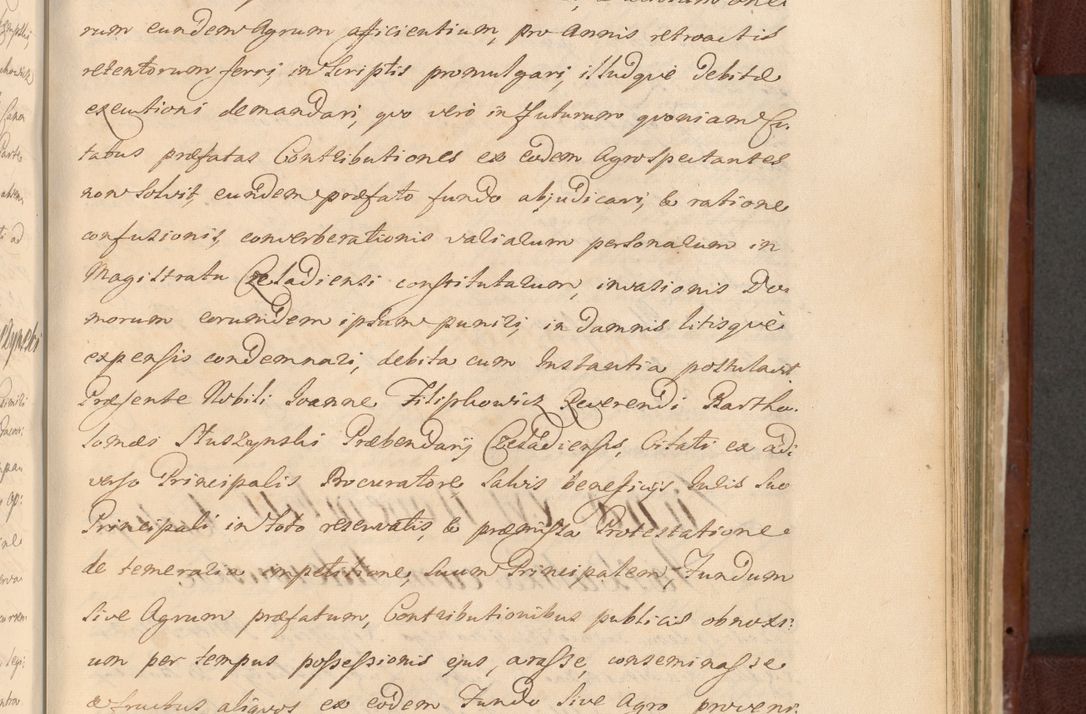 rum eundem Agrum afficientium, pro Annis retroactis
retentorum ferri, in Scriptis promulgari, illudque debitæ
executioni demandari, quo vero in futurum quoniam Ci,
tatus præfatas Contributiones ex eodem Agro spectantes
non Solvit, eundem præfato fundo abjudicari, & ratione
confusionis, converberationis variarum personarum in
Magistratu Czeladiensi constitutarum, invasionis Do,
morum eorundem ipsum puniri, in damnis litisque
expensis condemnari, debita cum Instantia postulavit
Præsente Nobili Joanne Filipkowicz Reverendi Bartho,
lomæi Stuszynski Præbendarij Czeladiensis, Citati ex adi
verso Principalis Procuratore Salvis beneficijs Juris Suo
Principali in toto reservatis, & præmissa Protestatione
de temeraria impetitione, Suum Principalem Fundum
Sive Agrum præfatum, Contributionibus publicis obnoxi:
um per tempus possessionis ejus, arasse, conseminasse
& fructus aliquos ex eodem Fundo Sive Agro proveni: